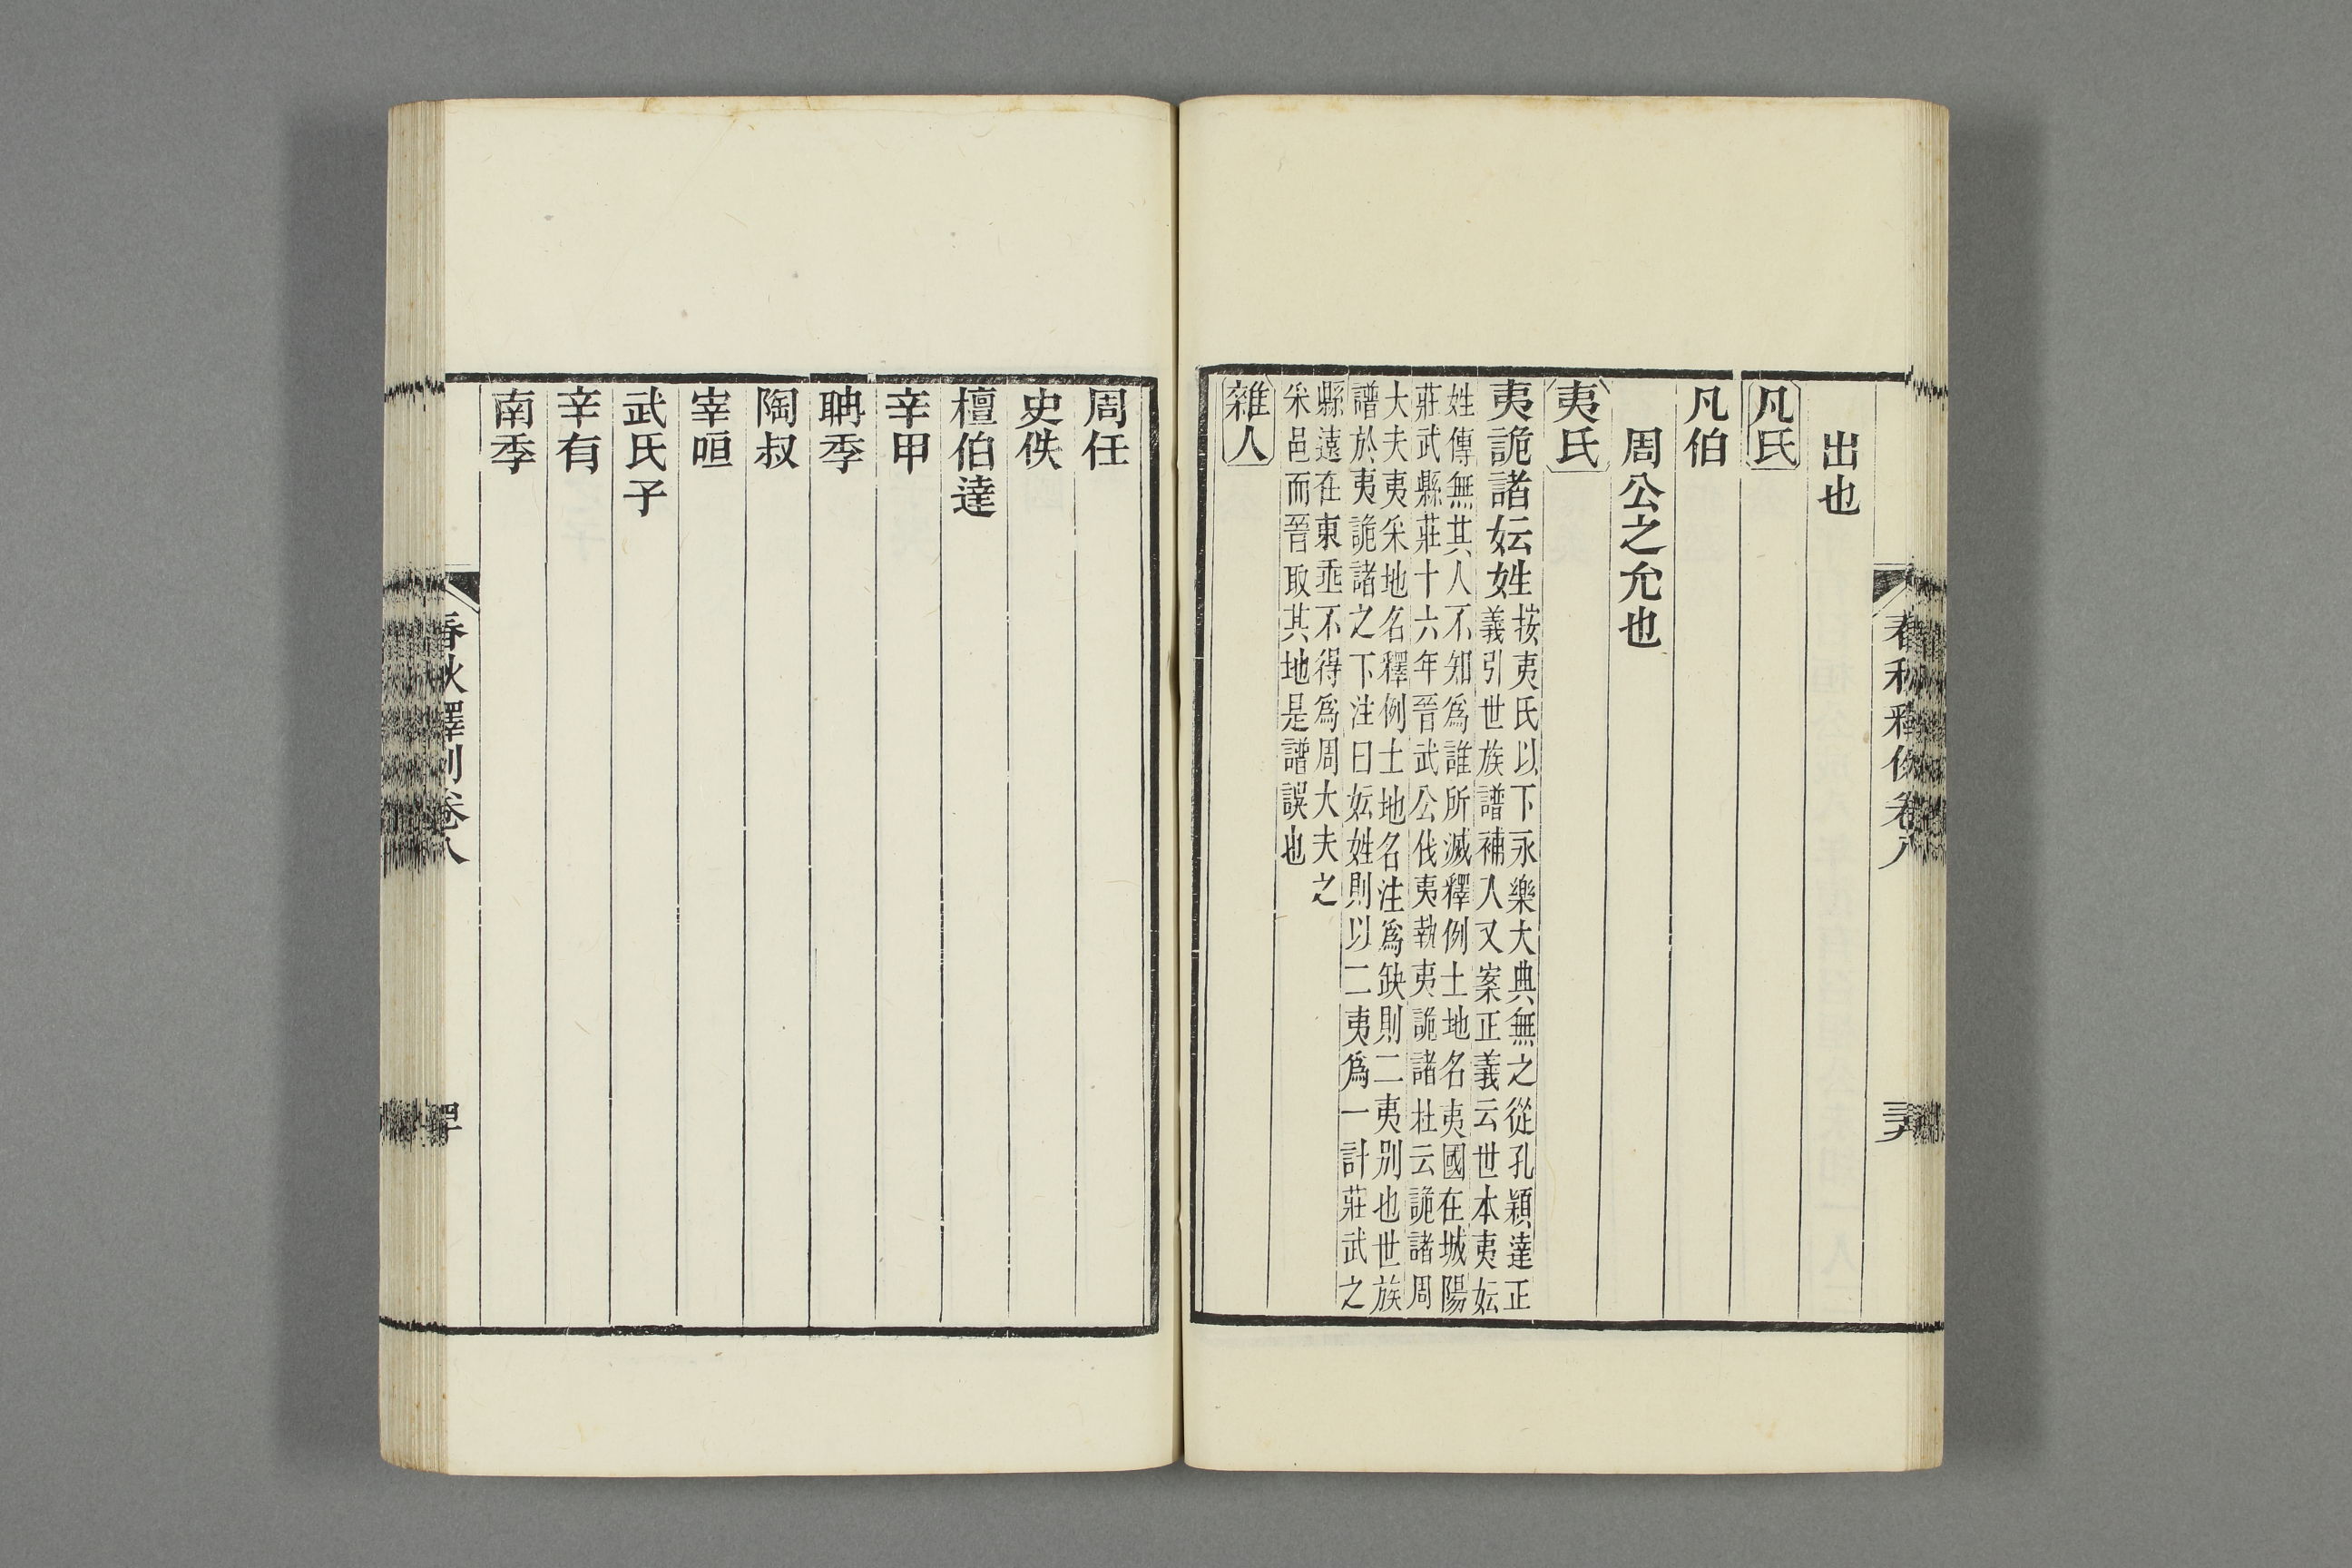 出也
凡氏
凡伯
周公之允也
夷氏
夷詭諸妘姓
按夷氏以下永樂大典無之從孔穎達正
義引世族譜補人又案正義云世本夷妘
姓傳無其人不知爲誰所滅釋例土地名夷國在城陽
莊武縣莊十六年晉武公伐夷執夷詭諸杜云詭諸周
大夫夷采地名釋例土地名注爲缺則二夷别也世族
譜於夷詭諸之下注曰妘姓則以二夷爲一計莊武之
縣遠在東垂不得爲周大夫之
采邑而晉取其地是譜誤也
雜人
周任
史佚
檀伯達
辛甲
聃季
陶叔
宰咺
武氏子
辛有
南季
春秋釋例卷八